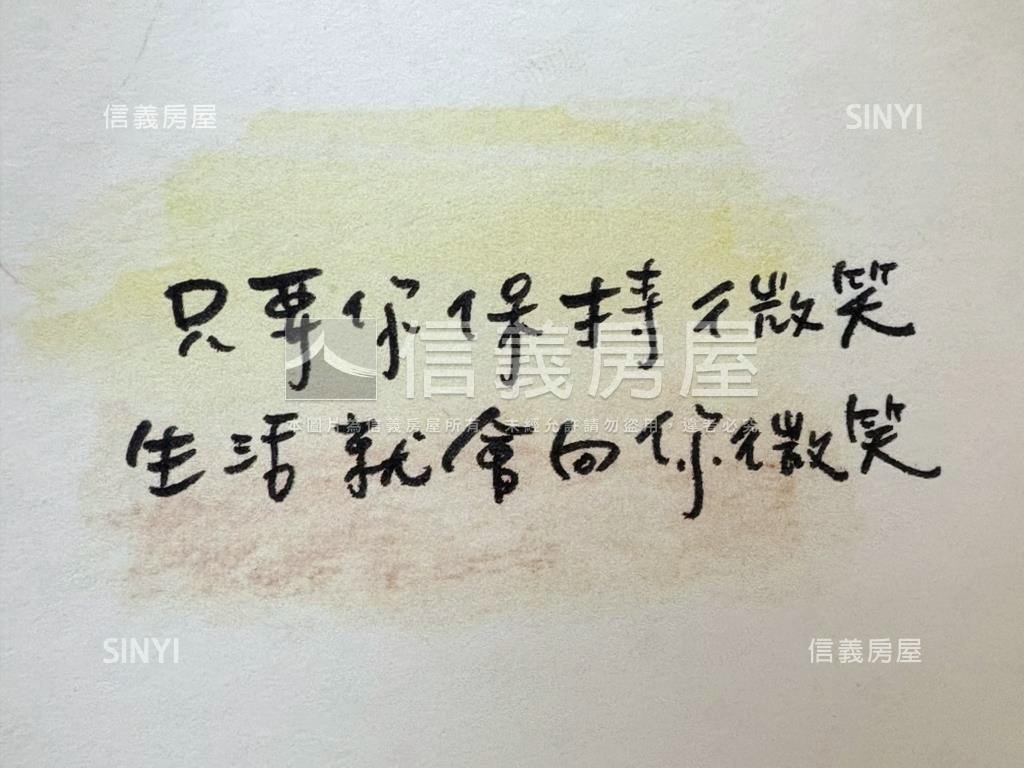 信義房屋 SINYI
只要你保持微笑
信義房屋
本圖片為信義房屋所有，未經允許請勿盜用，違者必究
生活就會向你微笑
SINYI 信義房屋